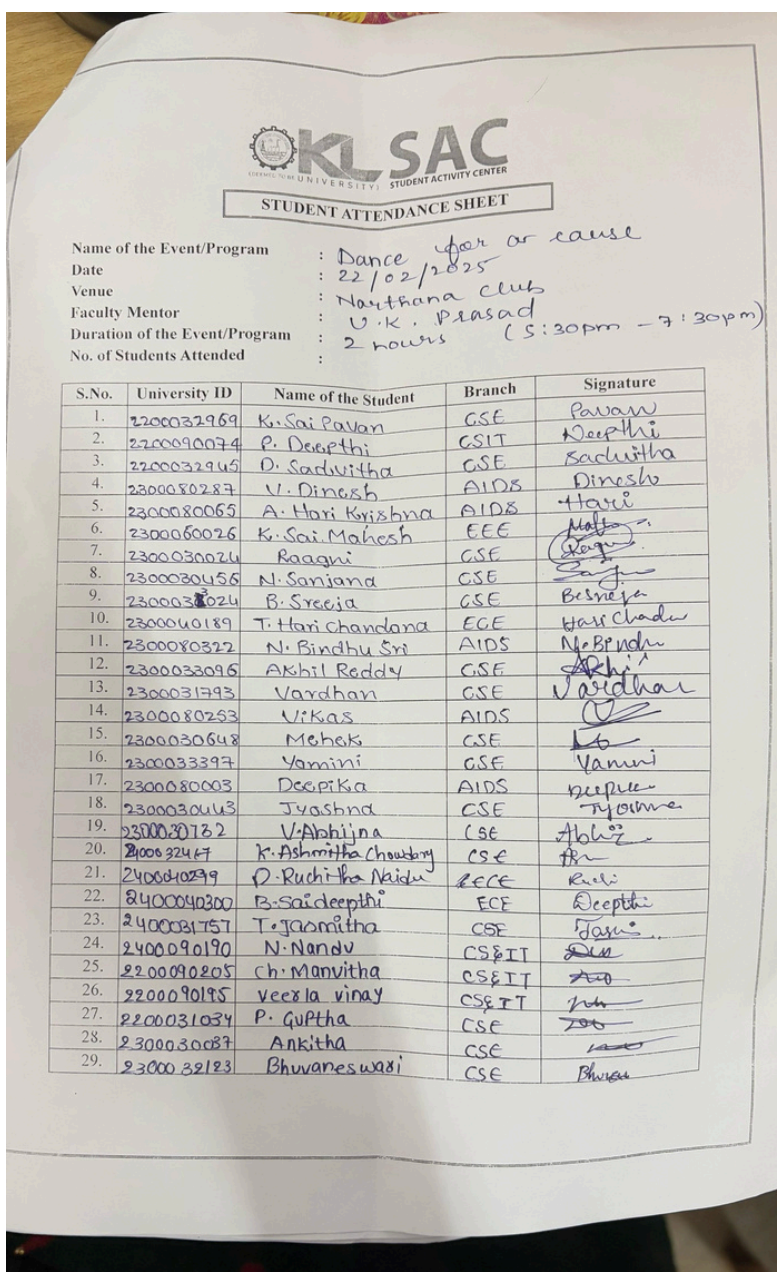 KL SAC
(DEEMED TO BE UNIVERSITY) STUDENT ACTIVITY CENTER
STUDENT ATTENDANCE SHEET
Name of the Event/Program : Dance for a cause
Date : 22/02/2025
Venue : Narthana Club
Faculty Mentor : U.K. Prasad
Duration of the Event/Program : 2 hours (5:30pm - 7:30pm)
No. of Students Attended :
S.No. University ID Name of the Student Branch Signature
1. 2200032969 K. Sai Pavan CSE Pavan
2. 2200090074 P. Deepthi CSIT Deepthi
3. 2200032945 D. Sadwitha CSE Sadwitha
4. 2300080287 V. Dinesh AIDS Dinesh
5. 2300080065 A. Hari Krishna AIDS Hari
6. 2300060026 K. Sai Mahesh EEE
7. 2300030024 Raagni CSE
8. 2300030456 N. Sanjana CSE
9. 2300033024 B. Sreeja CSE
10. 2300040189 T. Hari Chandana ECE
11. 2300080322 N. Bindhu Sri AIDS N. Bindhu
12. 2300033096 Akhil Reddy CSE Akhil
13. 2300031793 Vardhan CSE Vardhan
14. 2300080253 Vikas AIDS
15. 2300030648 Mehek CSE
16. 2300033397 Yamini CSE Yamini
17. 2300080003 Deepika AIDS
18. 2300030443 Jyashna CSE
19. 2300030732 V. Abhijna CSE
20. 2400032467 K. Ashmitha Chowdary CSE
21. 2400040299 D. Ruchitha Naidu ECE Ruchi
22. 2400040300 B. Saideepthi ECE Deepthi
23. 2400031757 T. Jasmitha CSE
24. 2400090190 N. Nandu CS&IT
25. 2200090205 Ch. Manvitha CS&IT
26. 2200090195 Veerla vinay CS&IT
27. 2200031034 P. Guptha CSE
28. 2300030037 Ankitha CSE
29. 2300032123 Bhuvaneswari CSE